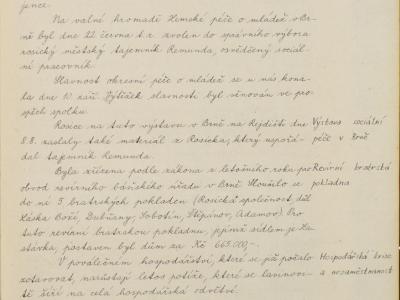 jence.
Na valné hromadě Zemské péče o mládež v Br-
ně byl dne 22. června t.r. zvolen do správního výboru
rosický městský tajemník Remunda, osvědčený sociál-
ní pracovník.
Slavnost okresní péče o mládež se u nás kona-
la dne 10. září. Výtěžek slavnosti byl věnován ve pro-
spěch spolku.
Rosice na tuto výstavu v Brně na Rejdišti dne Výstava sociální
8.8. zaslaly také materiál z Rosicka, který uspořá- péče v Brně
dal tajemník Remunda.
Byla zřízena podle zákona z letošního roku pro Revírní bratrská
obvod revírního báňského úřadu v Brně. Sloučilo se pokladna
do ní 5 bratrských pokladen (Rosická společnost, důl
Láska Boží, Dubňany, Sobotín, Štěpánov, Adamov). Pro
tuto revírní bratrskou pokladnu, jejímž sídlem je Za-
stávka, postaven byl dům za Kč 665.000,-.
V poválečném hospodářství, které se již počalo Hospodářská krize
zotavovat, narůstají letos potíže, které se lavinovi- a nezaměstnanost
tě šíří na celá hospodářská odvětví.